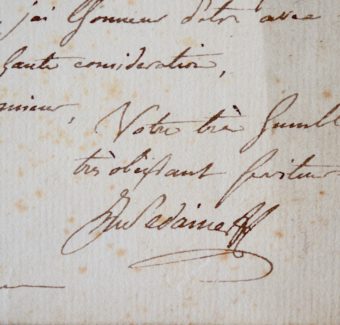 j'ai lhonneur d'etre avec
haute consideration,
Votre très humbl
très obeissant serviteur
Sedaine